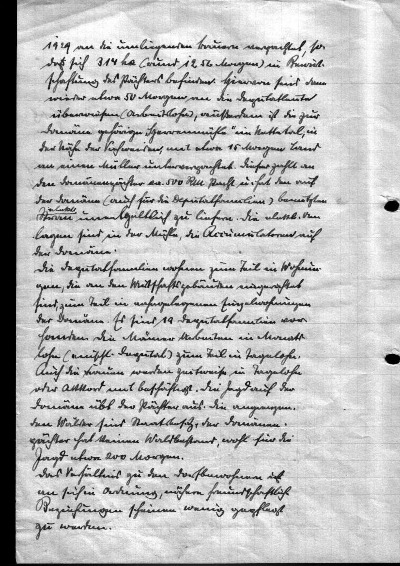 1929 an die umliegenden Bauern verpachtet, so
daß sich 314 ha (rund 1256 Morgen) in Bewirt-
schaftung des Pächters befinden. Hiervon sind dann
wieder etwa 50 Morgen an die Deputatleute
überwiesen (Arbeitslohn), außerdem ist die zur
Domäne gehörige "Herrenmühle" in, in
der Nähe der, mit etwa 15 Morgen Land
an einen Müller unterverpachtet. Dieser zahlt an
den Domänenpächter ca. 500 RM Pacht u. hat den auf
der Domäne (auch für die Deputatfamilien) benötigten
elektr.
Strom unentgeltlich zu liefern. Die elektr. An-
lagen sind in der Mühle, die Accumulatoren auf
der Domäne.
Die Deputatfamilien wohnen zum Teil in Wohnun-
gen, die an den Wirtschaftsgebäuden
sind, zum Teil in Einzelwohnungen
der Domäne. Es sind 19 Deputatfamilien vor-
handen. Die Männer arbeiten im Monats-
lohn (einschl. Deputat) zum Teil in Tagelohn.
Auch die Frauen werden zeitweise in Tagelohn
oder Akkord mit beschäftigt. Die Jagd auf der
Domäne übt der Pächter aus. Die angrenzen-
den Wälder sind Staatsbesitz, der Domänen-
pächter hat keinen Waldbestand, wohl für die
Jagd etwa 200 Morgen.
Das Verhältnis zu den Dorfbewohnern ist
an sich in Ordnung, nähere freundschaftlich
Beziehungen scheinen wenig gepflegt
zu werden.